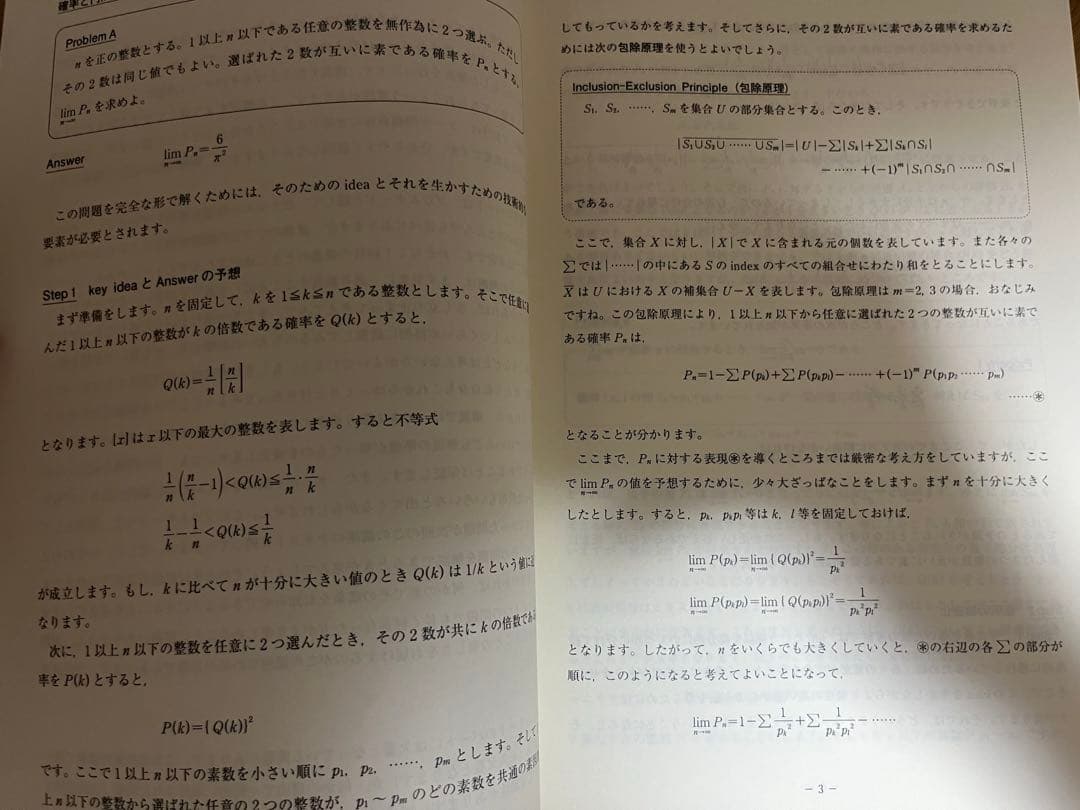 確率と
Problem A
nを正の整数とする。1以上n以下である任意の整数を無作為に2つ選ぶ。ただし
その2数は同じ値でもよい。選ばれた2数が互いに素である確率をPₙとする。
lim Pₙを求めよ。
n→∞
Answer
lim Pₙ=6/π²
n→∞
この問題を完全な形で解くためには，そのためのideaとそれを生かすための技術的
要素が必要とされます。
Step 1 key ideaとAnswerの予想
まず準備をします。nを固定して，kを1≦k≦nである整数とします。そこで任意に
んだ1以上n以下の整数がkの倍数である確率をQ(k)とすると，
Q(k)=1/n[n/k]
となります。[x]はx以下の最大の整数を表します。すると不等式
1/n(n/k−1)<Q(k)≦1/n・n/k
1/k−1/n<Q(k)≦1/k
が成立します。もし，kに比べてnが十分に大きい値のときQ(k)は1/kという値に
なります。
次に，1以上n以下の整数を任意に2つ選んだとき，その2数が共にkの倍数である
率をP(k)とすると，
P(k)={Q(k)}²
です。ここで1以上n以下の素数を小さい順にp₁, p₂, ……, pₘとします。そして
上n以下の整数から選ばれた任意の2つの整数が，p₁～pₘのどの素数を共通の素
してもっているかを考えます。そしてさらに，その2数が互いに素である確率を求めるた
めには次の包除原理を使うとよいでしょう。
Inclusion-Exclusion Principle（包除原理）
S₁, S₂, ……, Sₘを集合Uの部分集合とする。このとき，
|S₁∪S₂∪……∪Sₘ|=|U|−∑|Sₖ|+∑|Sₖ∩Sₗ|
−……+(−1)ᵐ|S₁∩S₂∩……∩Sₘ|
である。
ここで，集合Xに対し，|X|でXに含まれる元の個数を表しています。また各々の
∑では|……|の中にあるSのindexのすべての組合せにわたり和をとることにします。
X̅はUにおけるXの補集合U−Xを表します。包除原理はm=2, 3の場合，おなじみ
ですね。この包除原理により，1以上n以下から任意に選ばれた2つの整数が互いに素で
ある確率Pₙは，
Pₙ=1−∑P(pₖ)+∑P(pₖpₗ)−……+(−1)ᵐP(p₁p₂……pₘ)
……㊟
となることが分かります。
ここまで，Pₙに対する表現㊟を導くところまでは厳密な考え方をしていますが，ここ
でlim Pₙの値を予想するために，少々大ざっぱなことをします。まずnを十分に大きく
n→∞
したとします。すると，pₖ, pₖpₗ等はk, l等を固定しておけば，
lim P(pₖ)=lim{Q(pₖ)}²=1/pₖ²
n→∞ n→∞
lim P(pₖpₗ)=lim{Q(pₖpₗ)}²=1/pₖ²pₗ²
n→∞ n→∞
となります。したがって，nをいくらでも大きくしていくと，㊟の右辺の各∑の部分が
順に，このようになると考えてよいことになって，
lim Pₙ=1−∑1/pₖ²+∑1/pₖ²pₗ²−……
n→∞
−3−